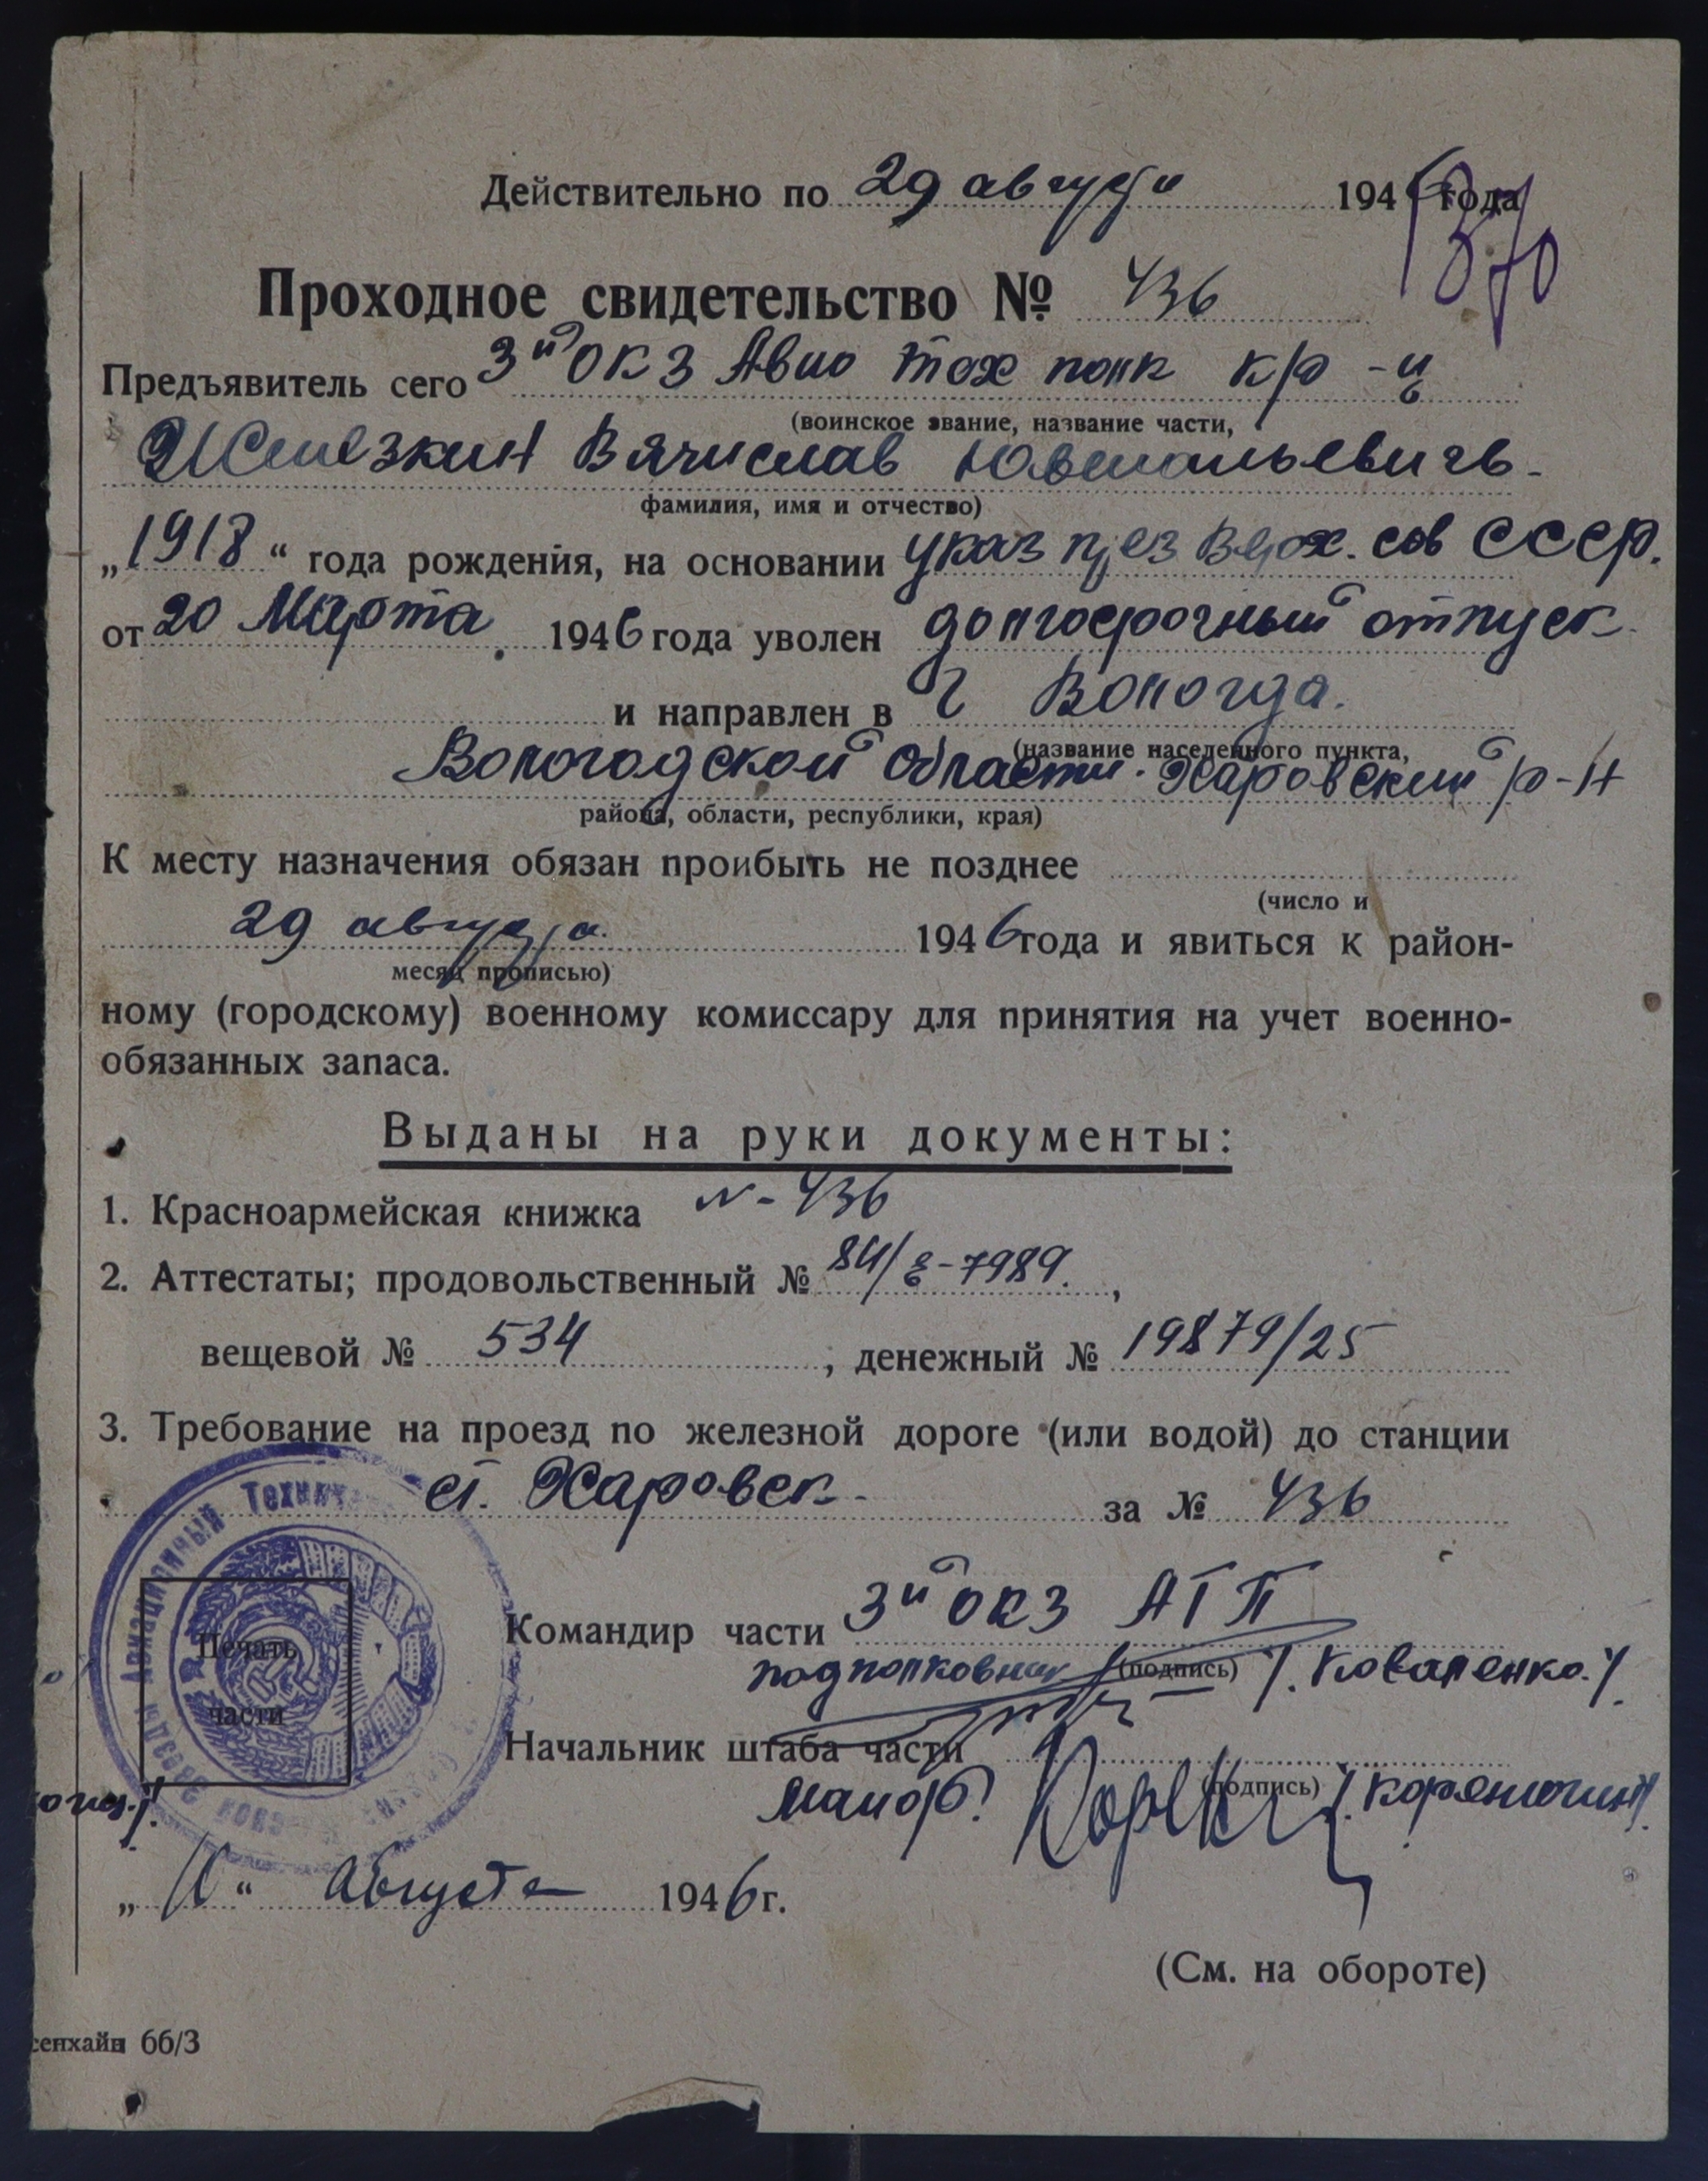 Действительно по 29 августа 1946 года
1370
Проходное свидетельство № 436
Предъявитель сего 3й ОКЗ Авио тех полк кр-ц
(воинское звание, название части,
Железкин Вячислав Ювенальевичь
фамилия, имя и отчество)
„1918“ года рождения, на основании указ през Верх. сов СССР.
от 20 Марта 1946 года уволен долгосрочный отпуск
и направлен в г Вологда.
(название населенного пункта,
Вологодской области. Харовский р-н
района, области, республики, края)
К месту назначения обязан проибыть не позднее
(число и
29 августа 1946 года и явиться к район-
месяц прописью)
ному (городскому) военному комиссару для принятия на учет военно-
обязанных запаса.
Выданы на руки документы:
1. Красноармейская книжка N-436
2. Аттестаты; продовольственный № 84/ -7989.,
вещевой № 534, денежный № 19879/25
3. Требование на проезд по железной дороге (или водой) до станции
ст. Харовск за № 436
Авиационный Техни
Звезды
Печать
части
Командир части 3й ОКЗ АТП
подполковник (подпись) /. Коваленко./
Начальник штаба части
Маиор. (подпись) /. Коренюгин/.
„ “ Августа 1946 г.
(См. на обороте)
сенхайн 66/3